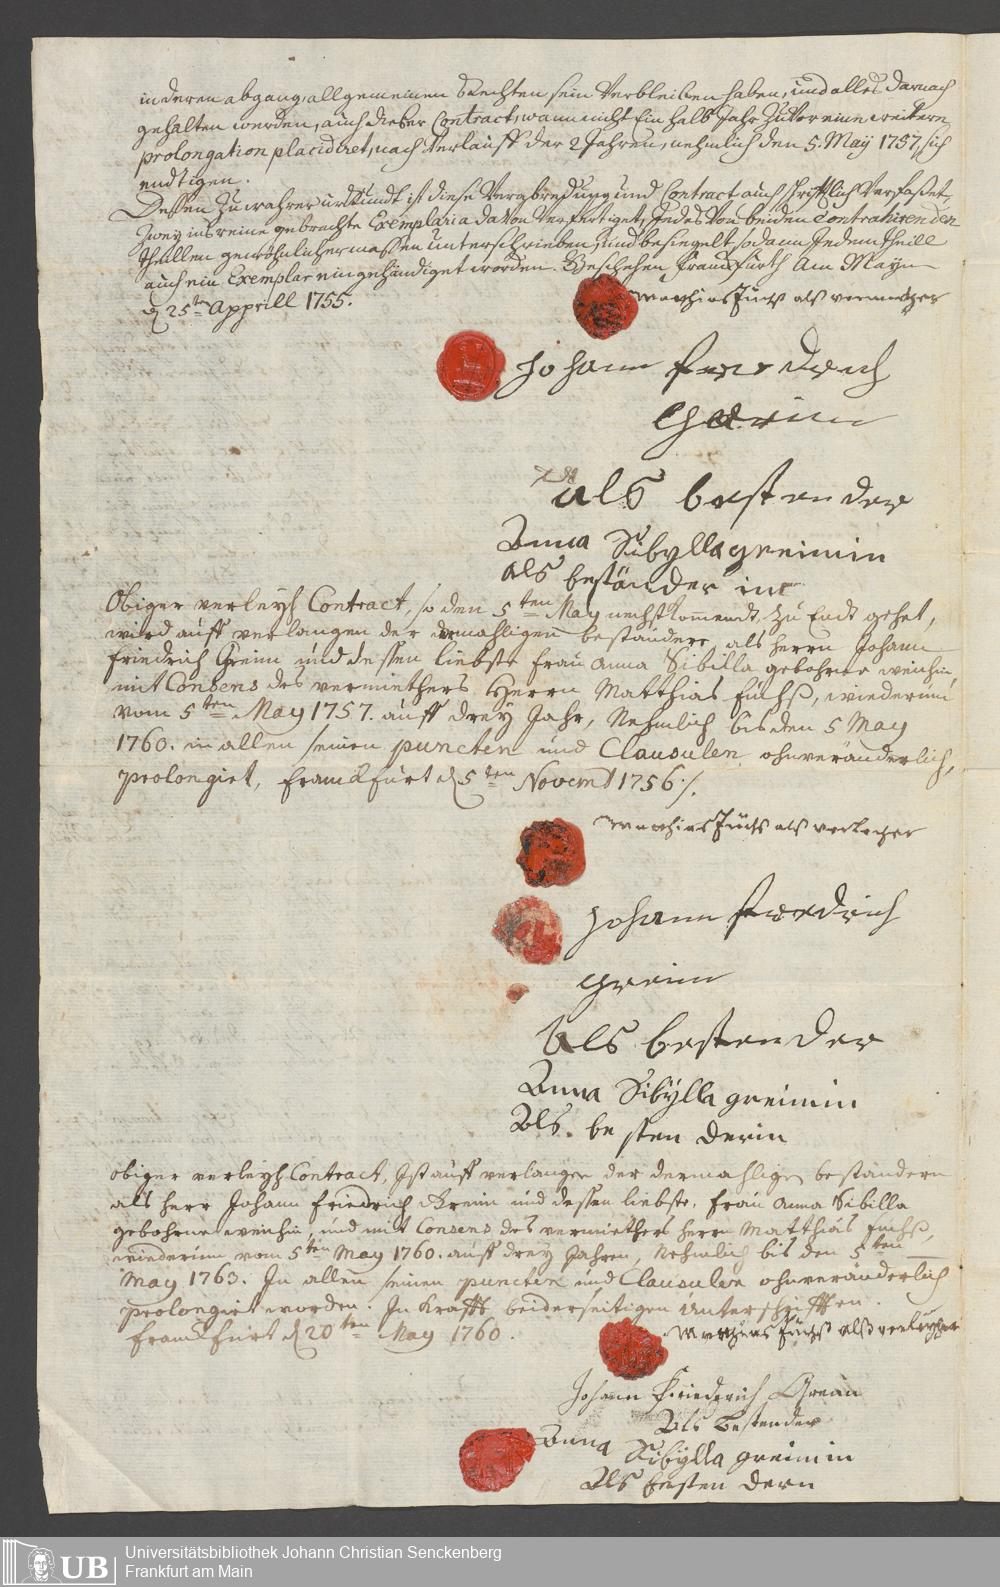 in deren abgang, allgemeinen Rechten sein Verbleiben haben, und alles darnach
gehalten werden, auch dießer Contract, wann nicht Ein halb Jahr zuvor eine weitere
prolongation placidiret, nach Verlauff der 2 Jahren, nehmlich den 5. Maÿ 1757, sich
endtigen.
Dessen zu wahrer Urkundt ist diese Verabredung und Contract auch schrifftlich Verfaßet,
zweÿ ins reine gebrachte Exemplaria davon Verfertiget, Jedes Von beiden Contrahirenden
Theillen gewöhnlichermaßen unterschrieben, und besiegelt, sodann Jedem theill
auch ein Exemplar eingehändiget worden. Geschehen Franckfurth Am Maÿn
d 25ten Apprill 1755.
Matthias Fuchs als vermiether
Johann Friedrich
Greim
als bestender
Anna Sibylla greimin
als beständer in
Obiger verleyh Contract, so den 5ten May nechstkomendt zu Endt gehet,
wird auff verlangen der dermahligen beständere als Herrn Johann
Friedrich Greim und dessen liebste Frau Anna Sibilla gebohrne weinhin,
mit Consens des vermiethers Herrn Matthias Fuchß, wiederum
vom 5ten May 1757. auff dreÿ Jahr, Nehmlich bis den 5 May
1760. in allen seinen puncten und Clausulen ohnveränderlich,
prolongirt, Franckfurt d 5ten Novemb 1756./.
Matthias Fuchs als verleyher
Johann Friedrich
Greim
Als bestender
Anna Sibÿlla greimin
Als. besten derin
obiger verleyh Contract, Ist auff verlangen der dermahligen beständern
als Herr Johann Friedrich Greim und dessen liebste, Frau Anna Sibilla
gebohrne weinhin, und mit Consens des vermiethers Herrn Matthias Fuchß,
wiederum vom 5ten May 1760. auff dreÿ Jahren, Nehmlich bis den 5ten
May 1763. In allen seinen puncten und Clausulen ohnveränderlich
prolongirt worden. In Krafft beiderseitigen Unterschrifften.
Franckfurt d 20ten May 1760.
Matthias Fuchß als verleyher
Johann Friederich Greim
Als bestender
Anna
Sibÿlla greimin
Als besten dern
UB
Universitätsbibliothek Johann Christian Senckenberg
Frankfurt am Main